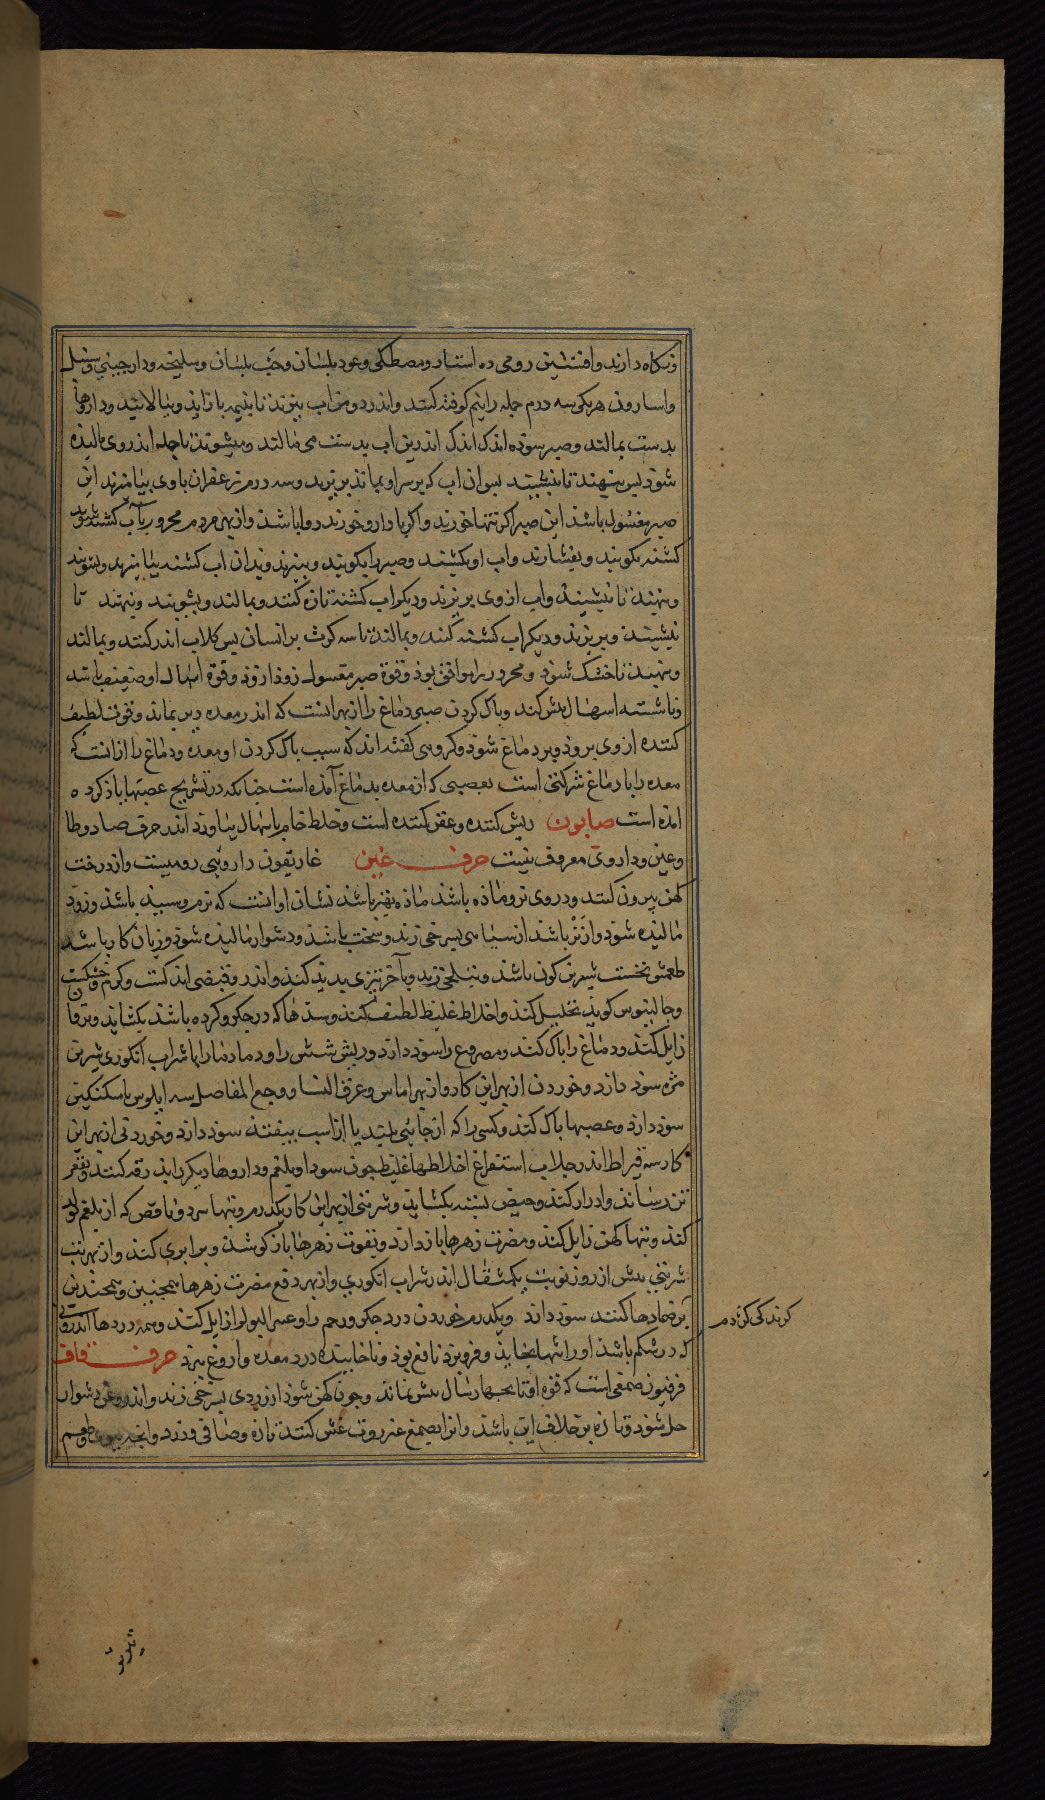 ونکاه دارند وافسنتین رومی ده استار ومصطکی وعود بلسان وحب بلسان وسلیخه ودارجینی وسنبل
واسارون هریکی سه درم جمله را نیم کوفته کنند واندر دو من اب بپزند تا بنیمه باز اید وبپالایند وداروها
بدست بمالند وصبر سوده اندک اندک اندرین اب بدست می مالند ومیشویند تا جمله اندر وی مالیده
شود پس بنهند تا بنشیند پس ان اب که بر سر او بماند بریزند وسه درم زعفران با وی بیامیزند این
صبر مغسول باشد این صبر اکر تنها خورند واکر با دارو خورند روا باشد وازبهر مردم محرور باب کشنه شویند
کشنه بکوبند وبفشارند واب او بکشند وصبر را بکوبند وببیزند وبدان اب کشنه بیامیزند وبشویند
وبنهند تا بنشیند واب از وی بریزند ودیکر اب کشنه تازه کنند وبمالند وبشویند وبنهند تا
بنشیند وبریزند ودیکر اب کشنه کنند وبمالند تا سه کرت بر انسان پس کلاب اندر کنند وبمالند
وبنهند تا خشک شود ومحرور را موافق بود وقوة صبر مغسول زود از ود وقوة اسهال او ضعیف باشد
وناشسته اسهال بیش کند وپاک کردن صبر دماغ را ازبهر انست که اندر معده دیر بماند وقوت لطیف
کننده از وی برود وبر دماغ شود وکروهی کفته اند که سبب پاک کردن او معده ودماغ را از انست که
معده را با دماغ شرکتی است بعصبی که از معده بدماغ آمده است چنانکه در تشریح عصبها یاد کرده
امده است صابون ریش کننده وعفن کننده است وخلط خام باسهال بیاورد اندر حرف صاد وطا
وعین وداروی معروف نیست حرف غین غاریقون داروئی رومیست واز درخت
کهن بیرون کنند ودر وی نر وماده باشد ماده بهتر باشد نشان او انست که نرم وسپید باشد وزود
مالیده شود وانر نر باشد از سیاهی بسرخی زند وسخت باشد ودشوار مالیده شود وزیان کار باشد
طعمش نخست شیرین کون باشد وبتلخی زند وبآخر تیزی بدید کند واندر وقبضی اندکست وکرم وخشکست
وجالینوس کوید تحلیل کند واخلاط غلیظ لطیف کند وسدها که در جکر وکرده باشد بکشاید ویرقان
زایل کند ودماغ را پاک کند ومصروع را سود دارد وریش شش را ودمادمار را با شراب انکوری شیرین
مزه سود دارد وخوردن ازبهر این کار دوازبهر اماس وعرق النسا ووجع المفاصل سه ابلوس با سکنکبین
سود دارد وعصبها پاک کند وکسی را که از جائی بلند یا از اسب بیفتد سود دارد وخوردنی ازبهر این
کار سه قیراط اندر جلاب استفراغ اخلاطها غلیظ چون سودا وبلغم وداروها دیکر را بدرقه کند وبقعر
تن رساند وادرار کند وحیض بسته بکشاید وشربتی ازبهر این کار یکدرم وتبها سرد ونا قص که از بلغم تولد
کند وتبها کهن زایل کند ومضرت زهرها باز دارد وبقوت زهرها باز کوشد وبرابری کند وازبهر تب
شربتی بیش از روز نوبت یکمثقال اندر شراب انکوری وازبهر دفع مضرت زهرها همچنین وهمچندین
بر ضمادها کنند سود دارد ویکدرم خوردن درد جکر ورحم را وعسر البول را زایل کند وهمه دردها اندرونی
که در شکم باشد او را تنها بخاید وفرو برد نافع بود وناخاییده درد معده واروغ ببرد حرف قاف
فرفیون صمغی است که قوة او تا بچهار سال بیش نماند وچون کهن شود از زردی بسرخی زند واندر روغن دشوار
حل شود وتازه بر خلاف این باشد وانرا بصمغ عنزروت غش کنند تازه وصافی وزرد وانچه طعم
کزندکی کژدم